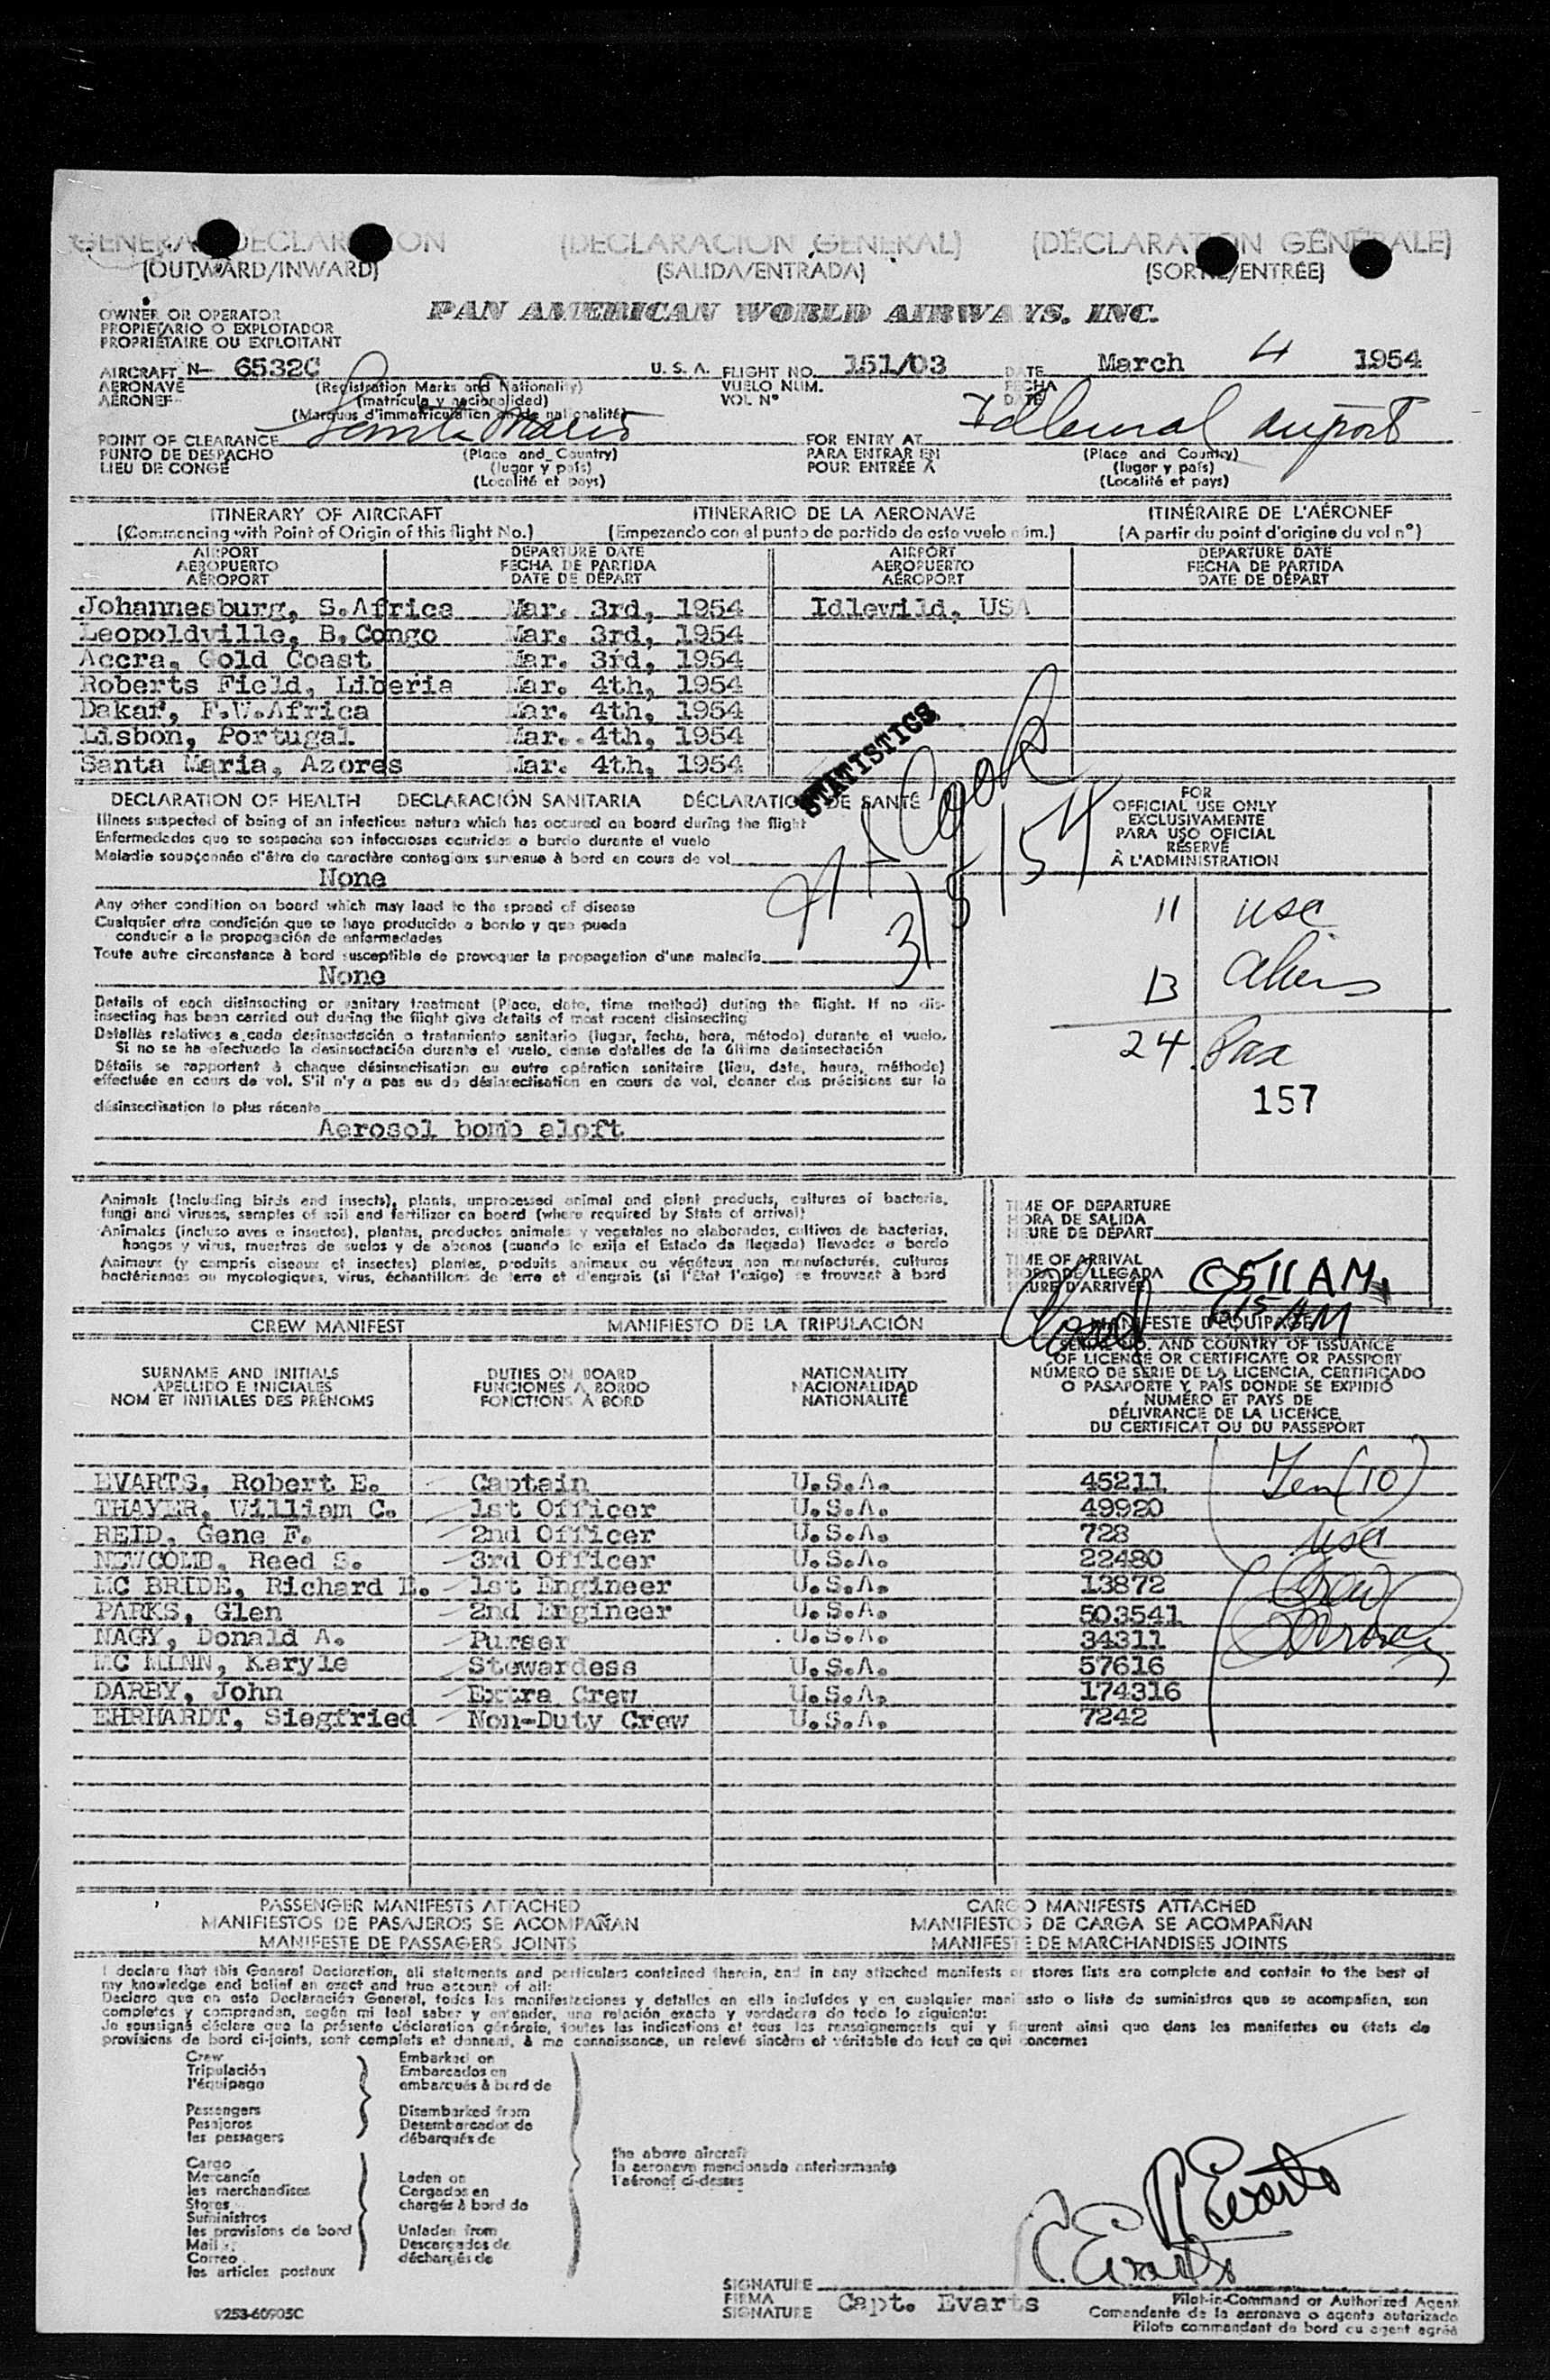 GENERAL DECLARATION (DECLARACION GENERAL) (DÉCLARATION GÉNÉRALE)
(OUTWARD/INWARD) (SALIDA/ENTRADA) (SORTIE/ENTRÉE)
OWNER OR OPERATOR PAN AMERICAN WORLD AIRWAYS, INC.
PROPIETARIO O EXPLOTADOR
PROPRIÉTAIRE OU EXPLOITANT
AIRCRAFT N- 6532C U. S. A. FLIGHT NO. 151/03 DATE March 4 1954
AERONAVE (Registration Marks and Nationality) VUELO NUM. FECHA
AÉRONEF (matrícula y nacionalidad) VOL Nº DATE
(Marques d'immatriculation et de nationalité)
POINT OF CLEARANCE Santa Maria FOR ENTRY AT Idlewild Airport
PUNTO DE DESPACHO (Place and Country) PARA ENTRAR EN (Place and Country)
LIEU DE CONGÉ (lugar y país) POUR ENTRÉE À (lugar y país)
(Localité et pays) (Localité et pays)
ITINERARY OF AIRCRAFT ITINERARIO DE LA AERONAVE ITINÉRAIRE DE L'AÉRONEF
(Commencing with Point of Origin of this flight No.) (Empezando con el punto de partida de este vuelo núm.) (A partir du point d'origine du vol nº)
AIRPORT DEPARTURE DATE AIRPORT DEPARTURE DATE
AEROPUERTO FECHA DE PARTIDA AEROPUERTO FECHA DE PARTIDA
AÉROPORT DATE DE DÉPART AÉROPORT DATE DE DÉPART
Johannesburg, S.Africa Mar. 3rd, 1954 Idlewild, USA
Leopoldville, B.Congo Mar. 3rd, 1954
Accra, Gold Coast Mar. 3rd, 1954
Roberts Field, Liberia Mar. 4th, 1954
Dakar, F.W.Africa Mar. 4th, 1954
Lisbon, Portugal Mar. 4th, 1954
Santa Maria, Azores Mar. 4th, 1954
STATISTICS
Cook
3/5/54
DECLARATION OF HEALTH DECLARACIÓN SANITARIA DÉCLARATION DE SANTÉ
Illness suspected of being of an infectious nature which has occured on board during the flight
Enfermedades que se sospecha son infecciosas ocurridas a bordo durante el vuelo
Maladie soupçonnée d'être de caractère contagieux survenue à bord en cours de vol
None
Any other condition on board which may lead to the spread of disease
Cualquier otra condición que se haya producido a bordo y que pueda
conducir a la propagación de enfermedades
Toute autre circonstance à bord susceptible de provoquer la propagation d'une maladie
None
Details of each disinsecting or sanitary treatment (Place, date, time method) during the flight. If no dis-
insecting has been carried out during the flight give details of most recent disinsecting
Detalles relativos a cada desinsectación o tratamiento sanitario (lugar, fecha, hora, método) durante el vuelo.
Si no se ha efectuado la desinsectación durante el vuelo, dense detalles de la última desinsectación
Détails se rapportant à chaque désinsectisation ou autre opération sanitaire (lieu, date, heure, méthode)
effectuée en cours de vol. S'il n'y a pas eu de désinsectisation en cours de vol, donner des précisions sur la
désinsectisation la plus récente
Aerosol bomb aloft
FOR
OFFICIAL USE ONLY
EXCLUSIVAMENTE
PARA USO OFICIAL
RÉSERVÉ
À L'ADMINISTRATION
11 USC
13 Aliens
24 Pax
157
Animals (Including birds and insects), plants, unprocessed animal and plant products, cultures of bacteria,
fungi and viruses, samples of soil and fertilizer on board (where required by State of arrival)
Animales (incluso aves e insectos), plantas, productos animales y vegetales no elaborados, cultivos de bacterias,
hongos y virus, muestras de suelos y de abonos (cuando lo exija el Estado da llegada) llevados a bordo
Animaux (y compris oiseaux et insectes) plantes, produits animaux ou végétaux non manufacturés, cultures
bactériennes ou mycologiques, virus, échantillons de terre et d'engrais (si l'État l'exige) se trouvant à bord
TIME OF DEPARTURE
HORA DE SALIDA
HEURE DE DÉPART
TIME OF ARRIVAL
HORA DE LLEGADA 0511 AM
HEURE D'ARRIVÉE
Closed 615 AM
CREW MANIFEST MANIFIESTO DE LA TRIPULACIÓN MANIFESTE D'ÉQUIPAGE
SURNAME AND INITIALS DUTIES ON BOARD NATIONALITY SERIAL NO. AND COUNTRY OF ISSUANCE
APELLIDO E INICIALES FUNCIONES A BORDO NACIONALIDAD OF LICENCE OR CERTIFICATE OR PASSPORT
NOM ET INITIALES DES PRÉNOMS FONCTIONS À BORD NATIONALITÉ NÚMERO DE SERIE DE LA LICENCIA, CERTIFICADO
O PASAPORTE Y PAÍS DONDE SE EXPIDIÓ
NUMÉRO ET PAYS DE
DÉLIVRANCE DE LA LICENCE,
DU CERTIFICAT OU DU PASSEPORT
EVARTS, Robert E. Captain U.S.A. 45211 Ten (10)
THAYER, William C. 1st Officer U.S.A. 49920
REID, Gene F. 2nd Officer U.S.A. 728 USC
NEWCOMB, Reed S. 3rd Officer U.S.A. 22480
MC BRIDE, Richard E. 1st Engineer U.S.A. 13872 Crew
PARKS, Glen 2nd Engineer U.S.A. 503541
NAGY, Donald A. Purser U.S.A. 34311
MC MINN, Karyle Stewardess U.S.A. 57616
DARBY, John Extra Crew U.S.A. 174316
EHRHARDT, Siegfried Non-Duty Crew U.S.A. 7242
PASSENGER MANIFESTS ATTACHED CARGO MANIFESTS ATTACHED
MANIFIESTOS DE PASAJEROS SE ACOMPAÑAN MANIFIESTOS DE CARGA SE ACOMPAÑAN
MANIFESTE DE PASSAGERS JOINTS MANIFESTE DE MARCHANDISES JOINTS
I declare that this General Declaration, all statements and particulars contained therein, and in any attached manifests or stores lists are complete and contain to the best of
my knowledge and belief an exact and true account of all:
Declaro que en esta Declaración General, todas las manifestaciones y detalles en ella incluídos y en cualquier manifiesto o lista de suministros que se acompañen, son
completos y comprenden, según mi leal saber y entender, una relación exacta y verdadera de todo lo siguiente:
Je soussigné déclare que la présente déclaration générale, toutes les indications et tous les renseignements qui y figurent ainsi que dans les manifestes ou états de
provisions de bord ci-joints, sont complets et donnent, à ma connaissance, un relevé sincère et véritable de tout ce qui concerne:
Crew Embarked on
Tripulación Embarcados en
l'équipage embarqués à bord de
Passengers Disembarked from
Pasajeros Desembarcados de
les passagers débarqués de
the above aircraft
la aeronave mencionada anteriormente
l'aéronef ci-dessus
Cargo
Mercancía Laden on
les marchandises Cargados en
Stores chargés à bord de
Suministros
les provisions de bord Unladen from
Mail Descargados de
Correo déchargés de
les articles postaux
R Evarts
R. Evarts
SIGNATURE
FIRMA Capt. Evarts Pilot-in-Command or Authorized Agent
SIGNATURE Comandante de la aeronave o agente autorizado
Pilote commandant de bord ou agent agréé
9253-60905C